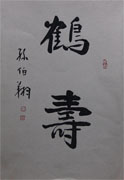 鶴壽
孫伯翔